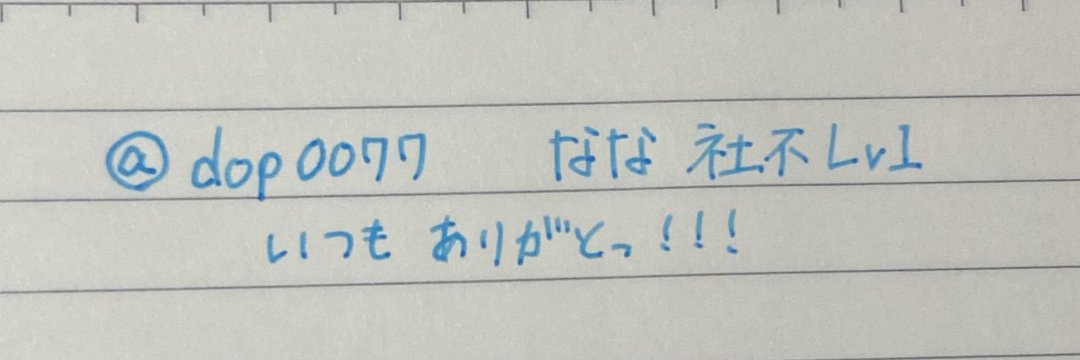 @dop0077 なな 社不Lv1
いつも ありがとっ!!!